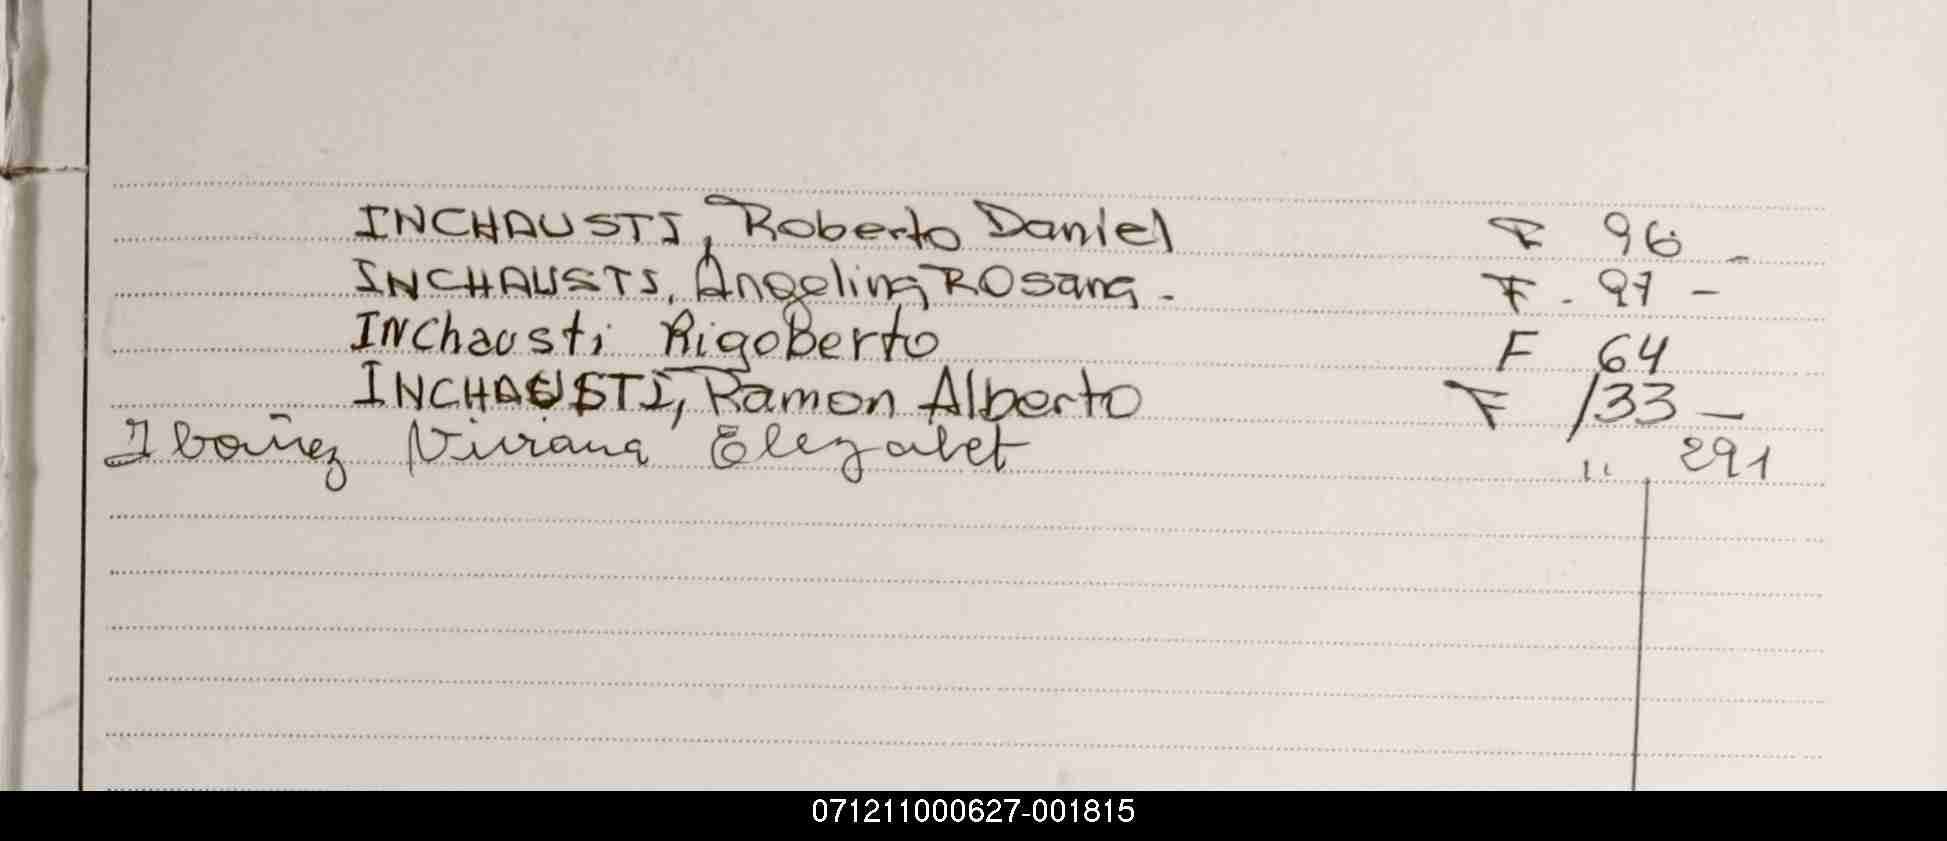 INCHAUSTI, Roberto Daniel F 96 -
INCHAUSTI, Angelina ROsana - F. 97 -
INChausti RigoBerto F 64
INCHAUSTI, Ramon Alberto F 133 -
Ibañez Viviana Elezabet " 291
071211000627-001815